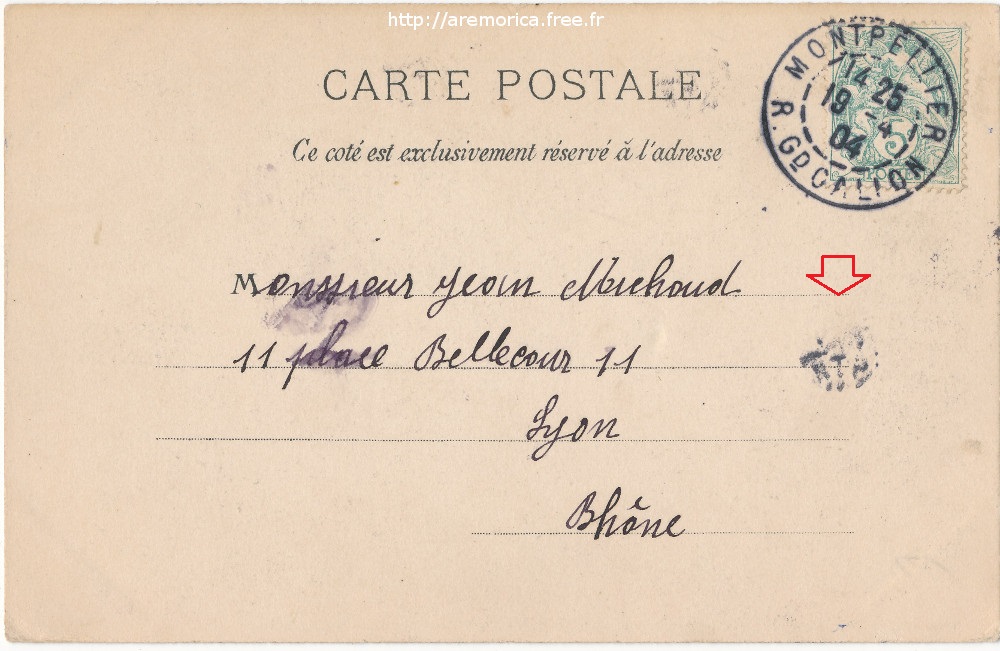 http://aremorica.free.fr
CARTE POSTALE
Ce coté est exclusivement réservé à l'adresse
MONTPELLIER
14 25
19 -4
04
R. GD GALION
5
Monsieur Jean Michoud
11 place Bellecour 11
Lyon
Rhône